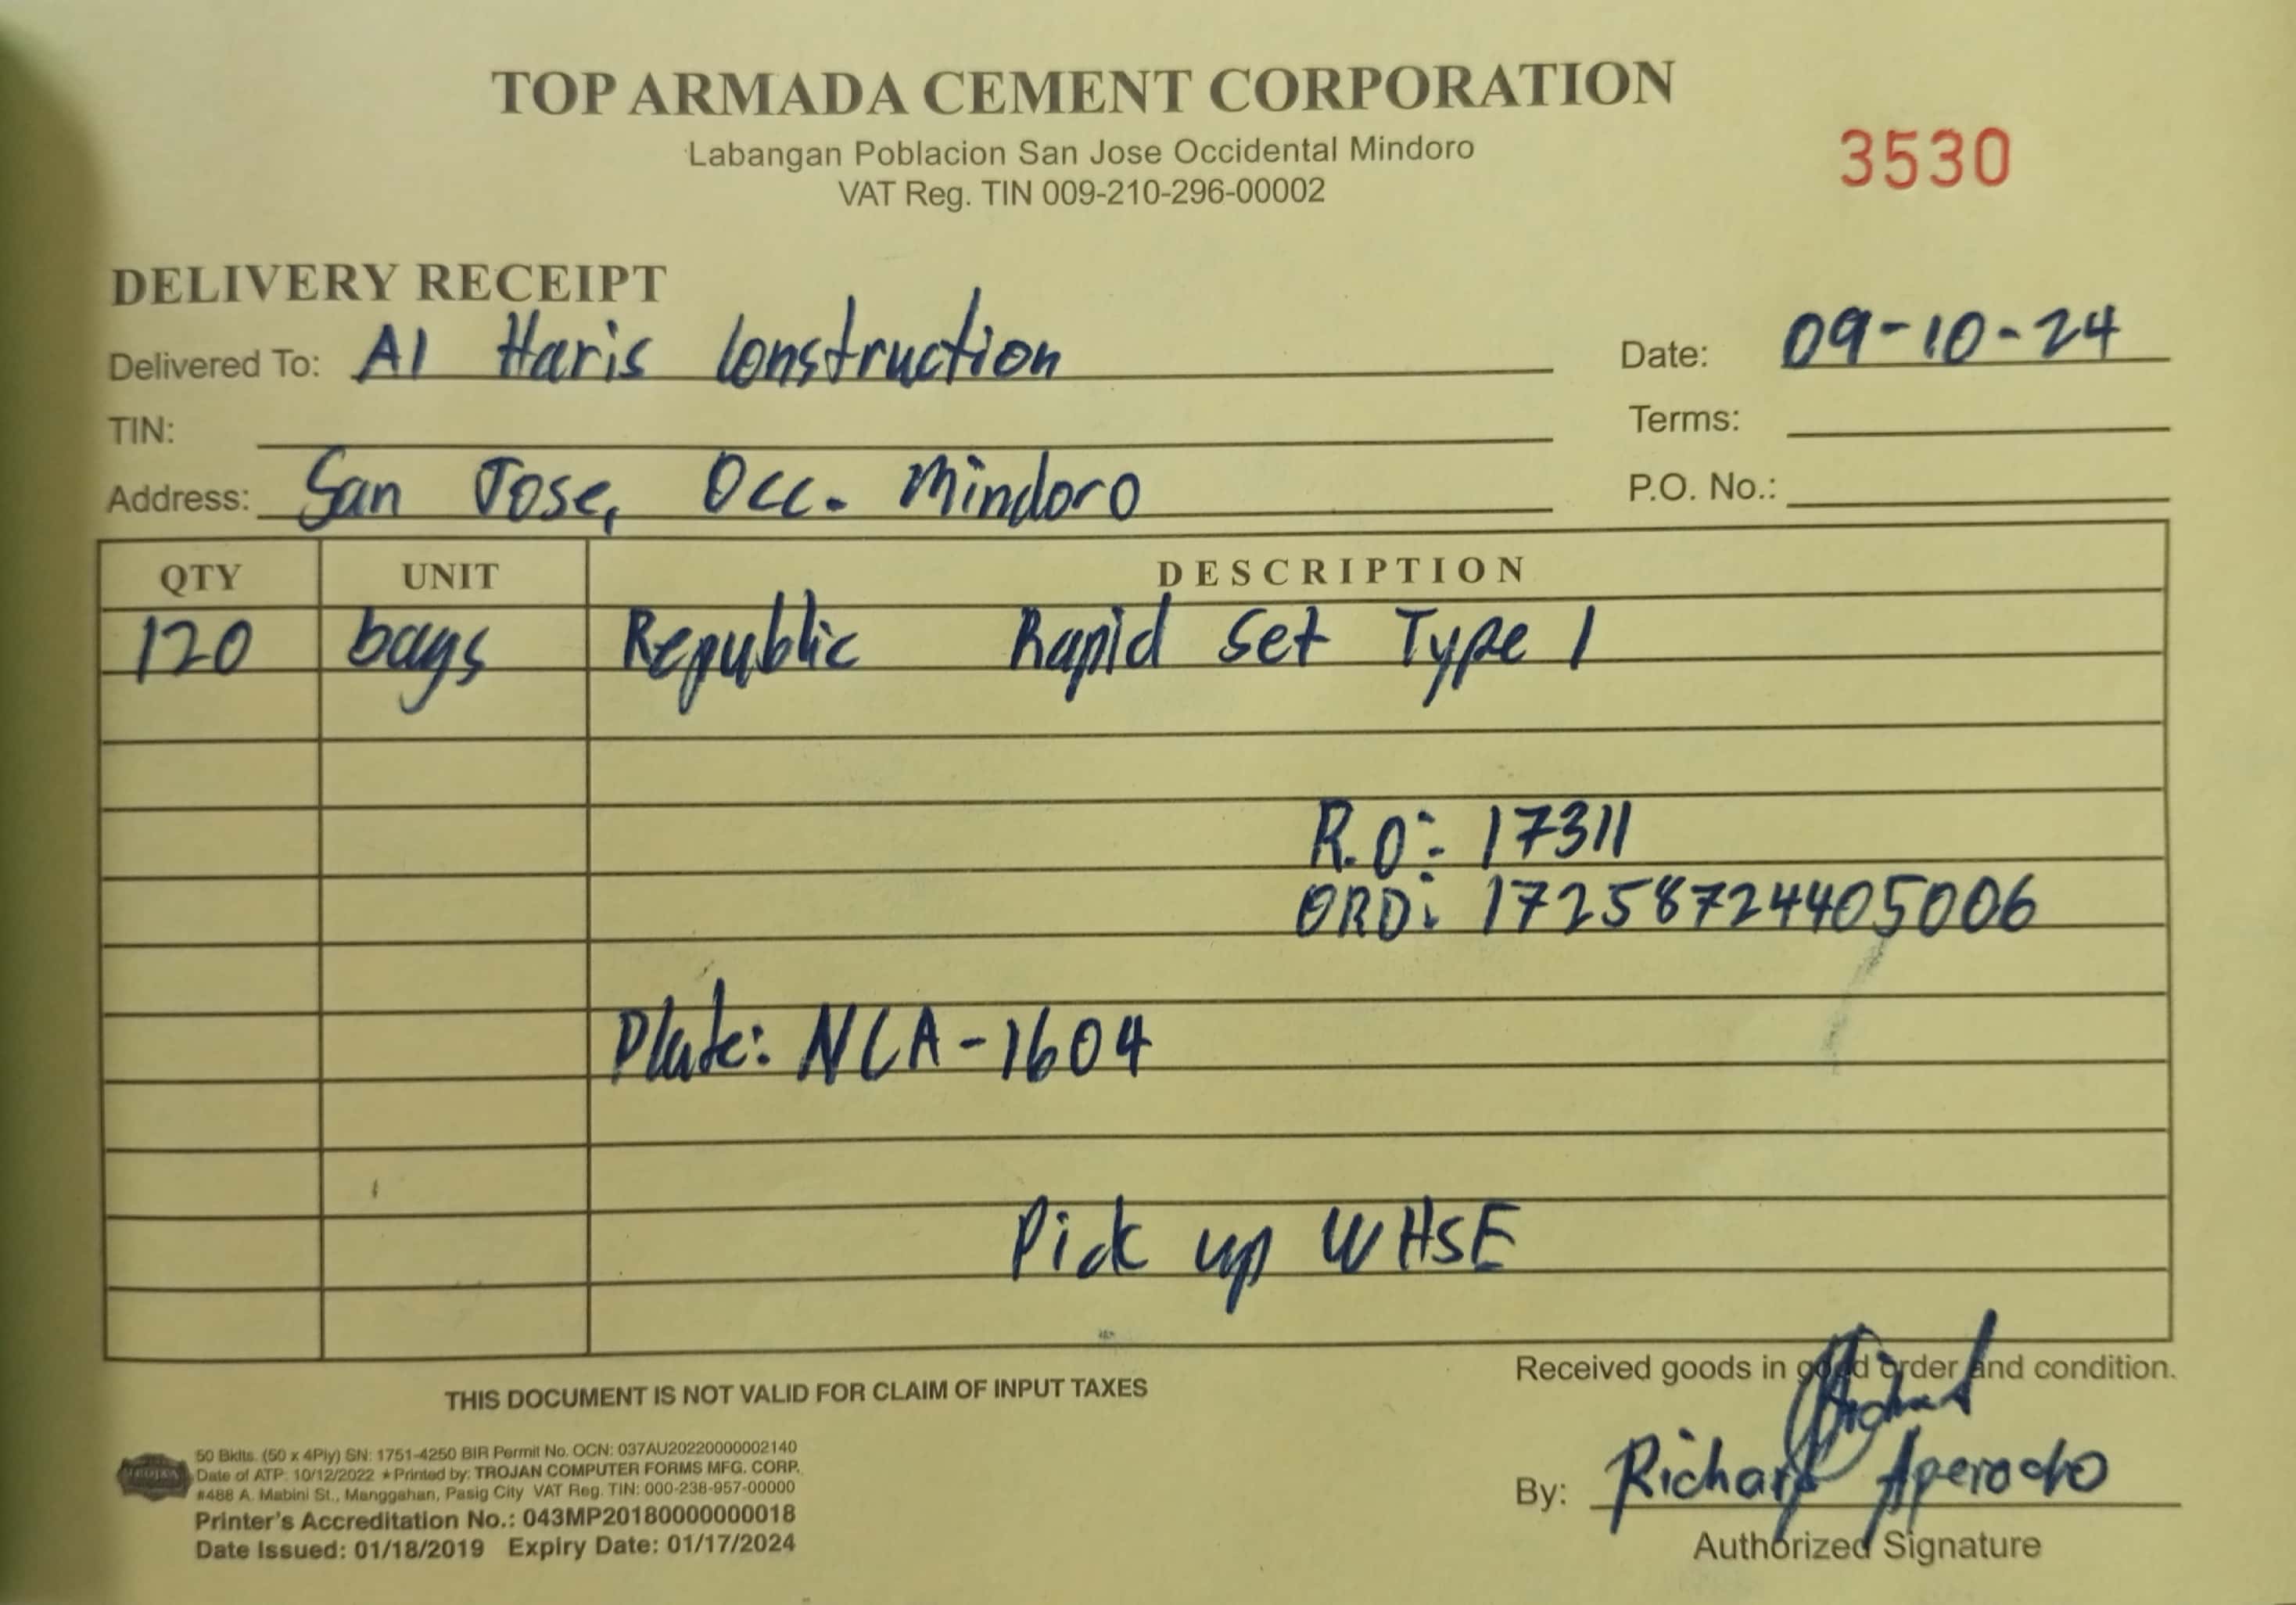 TOP ARMADA CEMENT CORPORATION
Labangan Poblacion San Jose Occidental Mindoro
VAT Reg. TIN 009-210-296-00002
3530
DELIVERY RECEIPT
Delivered To: Al Haris Construction
Date: 09-10-24
TIN:
Terms:
Address: San Jose, Occ. Mindoro
P.O. No.:
QTY UNIT DESCRIPTION
120 bags Republic Rapid Set Type 1
R.O: 17311
ORD: 17258724405006
Plate: NCA-1604
Pick up WHSE
Received goods in good order and condition.
THIS DOCUMENT IS NOT VALID FOR CLAIM OF INPUT TAXES
50 Bklts. (50 x 4Ply) SN: 1751-4250 BIR Permit No. OCN: 037AU20220000002140
Date of ATP: 10/12/2022 ★ Printed by: TROJAN COMPUTER FORMS MFG. CORP.
#488 A. Mabini St., Manggahan, Pasig City VAT Reg. TIN: 000-238-957-00000
Printer's Accreditation No.: 043MP20180000000018
Date Issued: 01/18/2019 Expiry Date: 01/17/2024
By: Richard
Authorized Signature